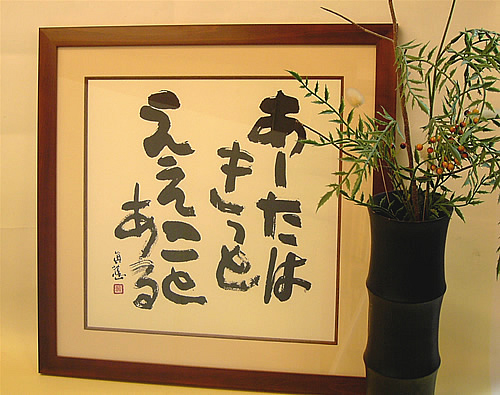 あしたは
きっと
ええこと
ある